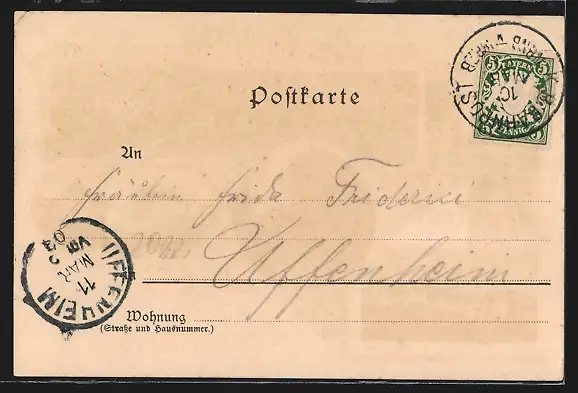 Postkarte
5 BAYERN 5
PFENNIG
BAHNPOST
10
MAR
An
Fräulein Frida Friderici
Uffenheim
UFFENHEIM
11
MAR
03
Wohnung
(Straße und Hausnummer.)